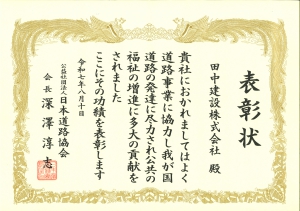 表彰状
田中建設株式会社 殿
貴社におかれましてはよく
道路事業に協力し我が国
道路の発達に尽力され公共の
福祉の増進に多大の貢献を
されました
ここにその功績を表彰します
令和七年八月十日
公益社団法人 日本道路協会
会長 深澤淳志